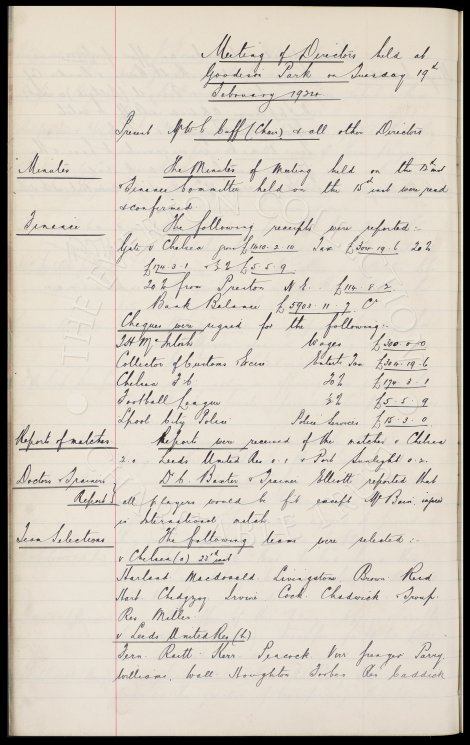 Meeting of Directors held at
Goodison Park on Tuesday 19th
February 1924.
Present Mr W C Cuff (Chair) & all other Directors
Minutes The Minutes of Meeting held on the 12th inst
& Finance Committee held on the 15th inst were read
& confirmed
Finance The following receipts were reported:-
Gate v Chelsea gross £1410.2.10 Tax £304.19.6 20%
£174.3.1 & ½% £5.5.9
20% from Preston N.E. £114.8.2
Bank Balance £5903.11.7 Cr
Cheques were signed for the following:-
T.H. McIntosh Wages £300.0.0
Collector of Customs & Excise Entert. Tax £304.19.6
Chelsea F.C. 20% £174.3.1
Football League ½% £5.5.9
L'pool City Police Police Services £15.3.0
Reports of matches Reports were received of the matches v Chelsea
2.0 Leeds United Res 0.1 & Port Sunlight 0.2.
Doctors & Trainers Dr C. Baxter & Trainer Elliott reported that
Report all players would be fit except Mr Bain, injured
in International match.
Team Selections The following teams were selected:-
v Chelsea (a) 23rd inst
Harland Macdonald Livingstone Brown Reid
Hart. Chedgzoy Irvine Cock Chadwick & Troup.
Res Miller.
v Leeds United Res (h)
Fern. Raitt. Kerr Peacock Parry
Williams, Wall Houghton Forbes Res Caddick